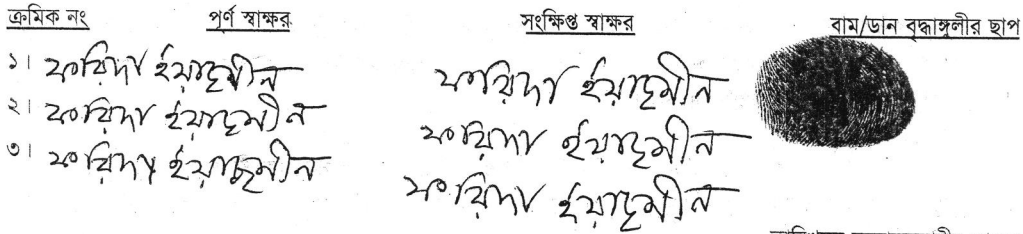 ক্রমিক নং পূর্ণ স্বাক্ষর সংক্ষিপ্ত স্বাক্ষর বাম/ডান বৃদ্ধাঙ্গুলীর ছাপ
১। ফরিদা ইয়াছমীন ফরিদা ইয়াছমীন
২। ফরিদা ইয়াছমীন ফরিদা ইয়াছমীন
৩। ফরিদা ইয়াছমীন ফরিদা ইয়াছমীন